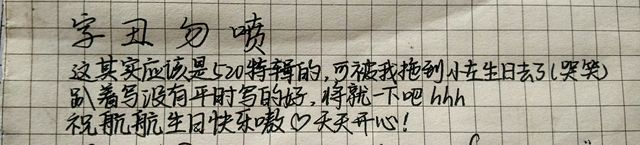 字丑勿喷
这其实应该是520特辑的，可被我拖到小左生日去了(哭笑)
趴着写没有平时写的好，将就一下吧hhh
祝航航生日快乐嗷♡天天开心！